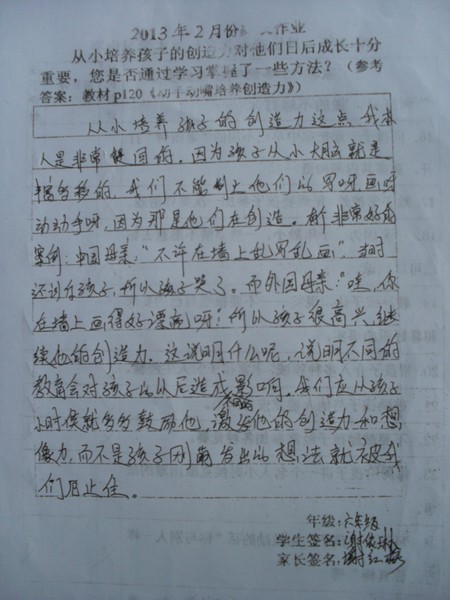 2013年2月份 作业
从小培养孩子的创造力对他们日后成长十分
重要，您是否通过学习掌握了一些方法？（参考
答案：教材p120《动手动嘴培养创造力》）
从小培养孩子的创造力这点，我本
人是非常赞同的，因为孩子从小大脑就是
我们不能制止他们的写呀，画呀
动动手呀，因为那是他们在创造。有个非常好的
案例：中国母亲："不许在墙上乱写乱画"，当时
还训斥孩子，所以孩子哭了。而外国母亲："哇，你
在墙上画得好漂亮呀"，所以孩子很高兴，继
续他的创造力。这说明什么呢，说明不同的
教育会对孩子的以后造成影响。我们应从孩子
小时候就多多鼓励他，激发他的创造力和想
像力，而不是孩子刚萌发出的想法就被我
们阻止住。
年级：六年级
学生签名：谢
家长签名：谢红